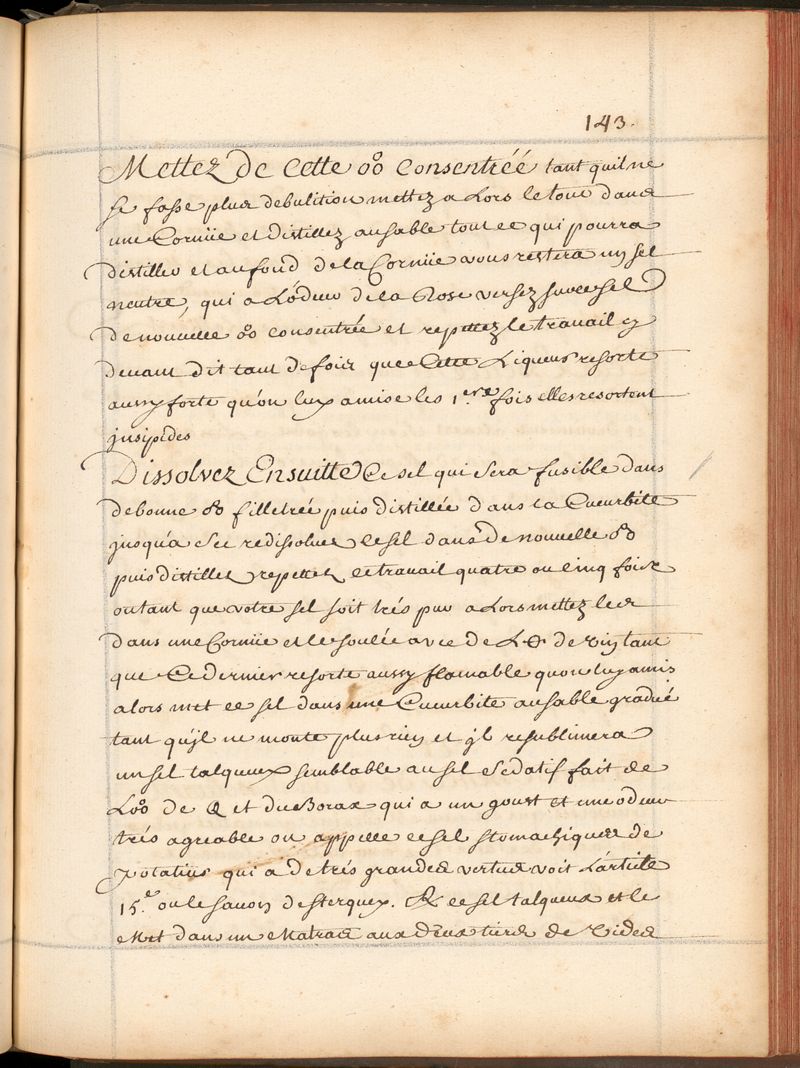 143.
Mettez de Cette oo° Consentréé tant quil ne
se fasse plus debulition mettez a Lors le tout dans
une Cornüe et distillez au sable tout ce qui pourra
distiller et au fond de la Cornüe vous restera un sel
neutre, qui a L'ódeur de la Rose versez sur ce sel
de nouvelle oo° consentrée et repettez le travail cy
devant dit tant de fois que Cette Liqueur resorte
aussy forte qu'on luy a mise les 1.ere fois elles resortent
jnsipides
Dissolvez Ensuitte Ce sel qui sera fusible dans
de bonne oo° filletrée puis distillée dans la Cucurbite
jusqu'a sec redissolves le sel dans de nouvelle oo°
puis distilles repettes le travail quatre ou Cinq fois
ou tant que votre sel soit trés pur a Lors mettez les
dans une Cornüe et le soulée avec de L' de vin tant
que Ce dernier resorte aussy flamable quon luy a mis
alors met ce sel dans une Cucurbite au sable gradué
tant qu'jl ne monte plus rien et jl resublimera
un sel talqueux semblable au sel sedatif fait de
L'oo° de et du Borax qui a un goust et une odeur
trés agreable on appelle ce sel stomachiques de
Potatius qui a de trés grandes vertus voit L'article
15.e ou le savon de sterquey. ce sel talqueux et le
met dans un Matras aux deux tiers de Vides